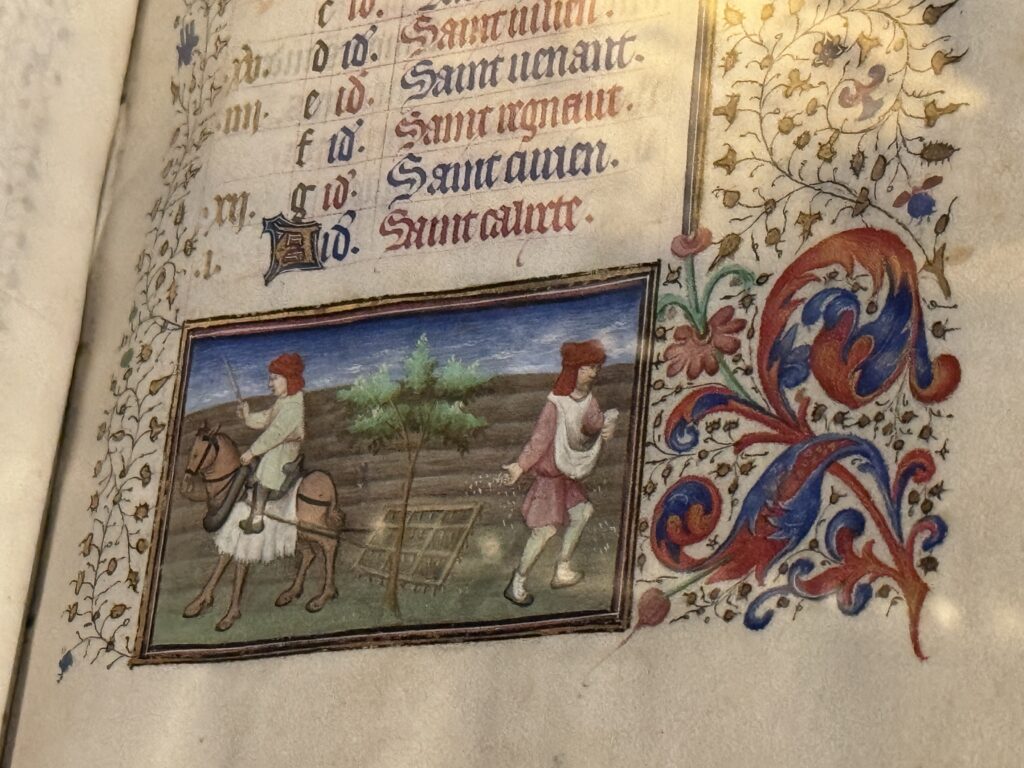 c id.
xv. d id. Saint iulien.
.iiii. e id. Saint uenant.
f id. Saint regnaut.
.xii. g id. Saint ciuien.
.i. A id. Saint calixte.